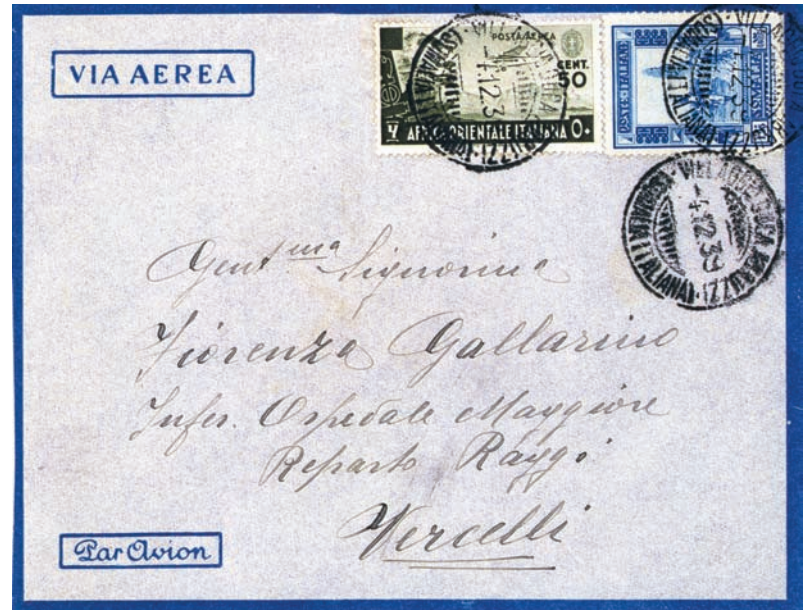 VIA AEREA
POSTA AEREA
CENT. 50
AFRICA ORIENTALE ITALIANA
POSTE ITALIANE
-4.12.39
Gent.ma Signorina
Fiorenza Gallarino
Infer. Ospedale Maggiore
Reparto Raggi
Vercelli
Par Avion